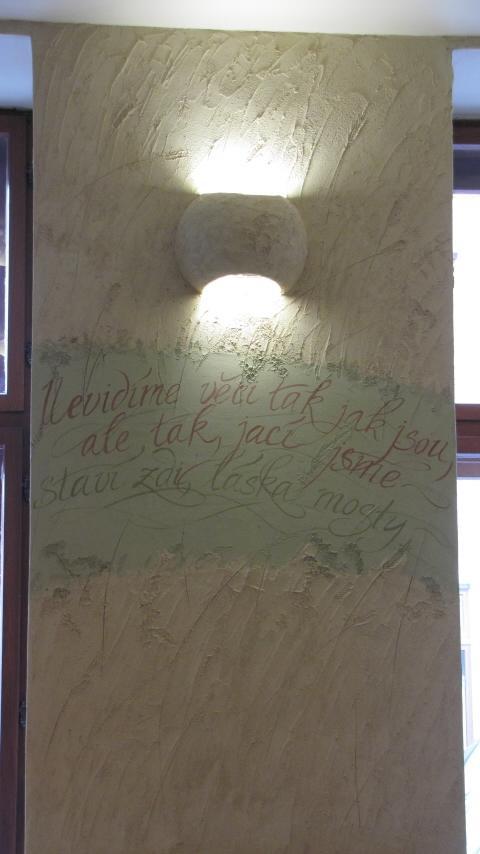 Nevidíme věci tak jak jsou,
ale tak, jací jsme
staví zdi, láska mosty